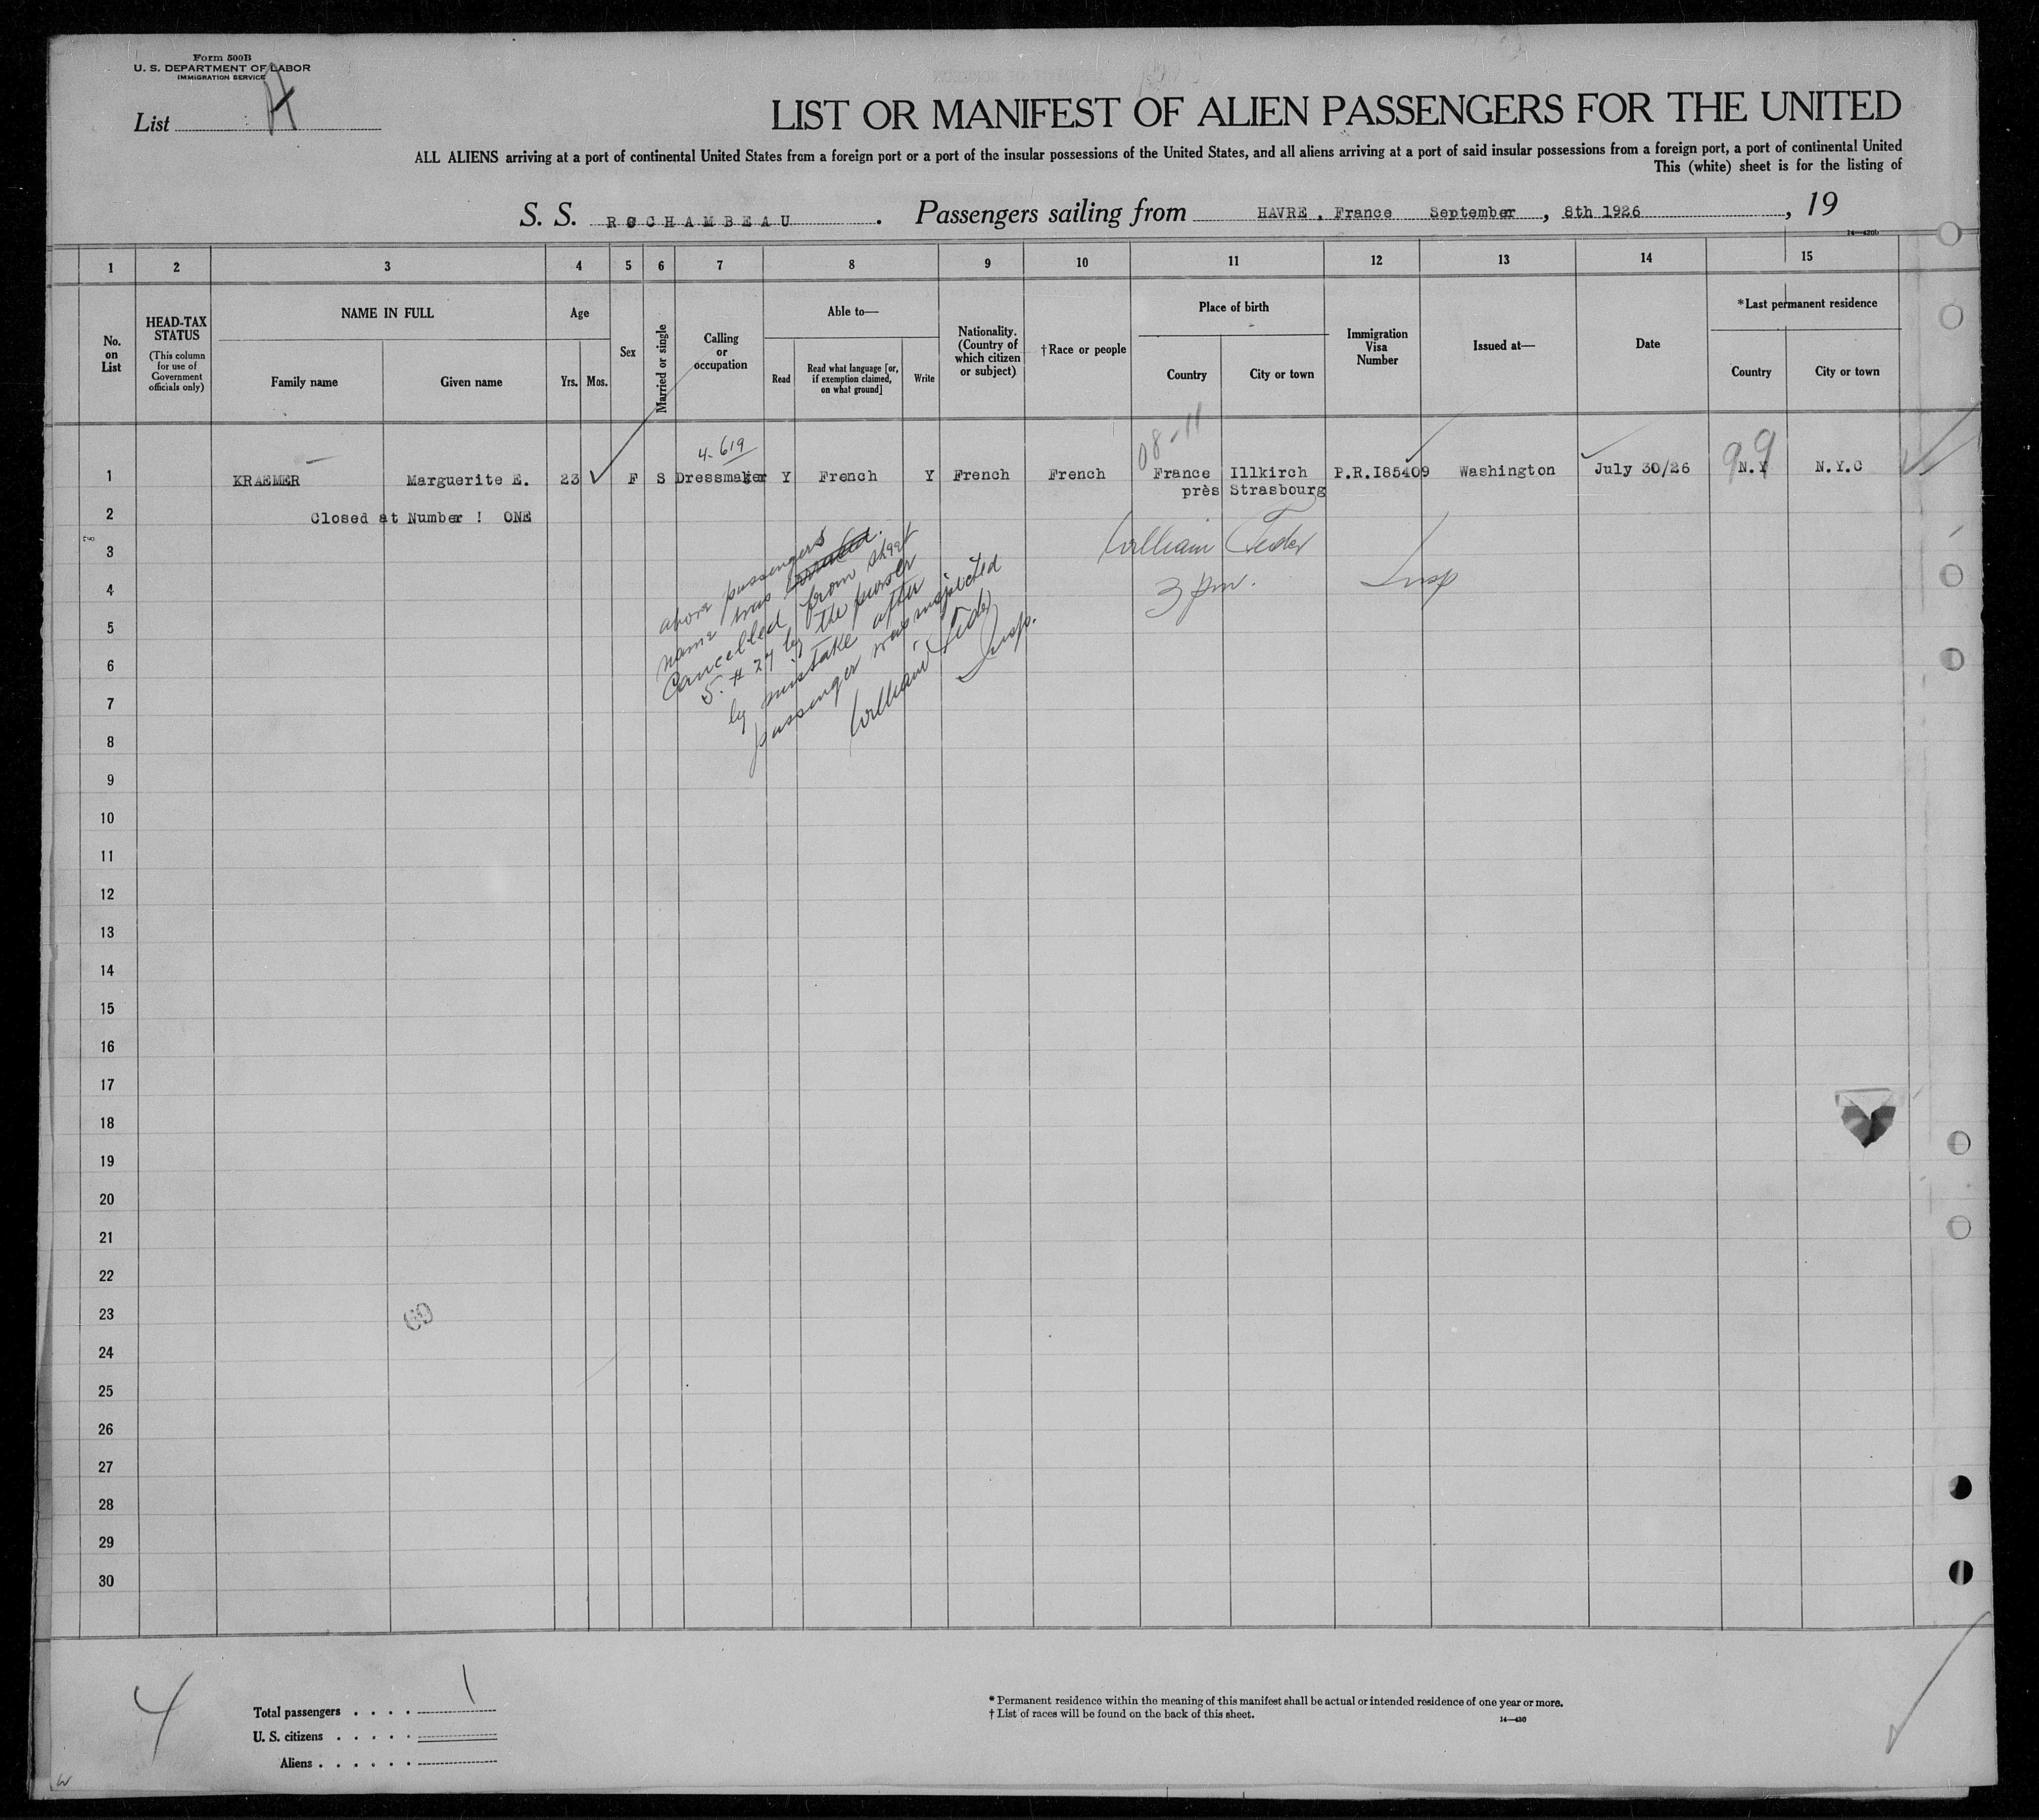 Form 500B
U. S. DEPARTMENT OF LABOR
IMMIGRATION SERVICE
List A
LIST OR MANIFEST OF ALIEN PASSENGERS FOR THE UNITED
ALL ALIENS arriving at a port of continental United States from a foreign port or a port of the insular possessions of the United States, and all aliens arriving at a port of said insular possessions from a foreign port, a port of continental United
This (white) sheet is for the listing of
S. S. ROCHAMBEAU. Passengers sailing from HAVRE, France September, 8th 1926, 19
14—430b
1 2 3 4 5 6 7 8 9 10 11 12 13 14 15
No. on List
HEAD-TAX STATUS
(This column for use of Government officials only)
NAME IN FULL
Family name
Given name
Age
Yrs. Mos.
Sex
Married or single
Calling or occupation
Able to—
Read
Read what language [or, if exemption claimed, on what ground]
Write
Nationality. (Country of which citizen or subject)
†Race or people
Place of birth
Country
City or town
Immigration Visa Number
Issued at—
Date
*Last permanent residence
Country
City or town
4-619
08-11
99
1 KRAEMER Marguerite E. 23 F S Dressmaker Y French Y French French France Illkirch P.R.I85409 Washington July 30/26 N.Y N.Y.C
près Strasbourg
2 Closed at Number ! ONE
3
4
5
6
7
8
9
10
11
12
13
14
15
16
17
18
19
20
21
22
23
24
25
26
27
28
29
30
above passengers
name was
Cancelled from sheet
5. # 27 by the purser
by mistake after
passenger was inspected
William Feder
Insp.
William Feder
3 pm. Insp
4
Total passengers . . . . 1
U. S. citizens . . . . .
Aliens . . . . . .
* Permanent residence within the meaning of this manifest shall be actual or intended residence of one year or more.
† List of races will be found on the back of this sheet.
14—430